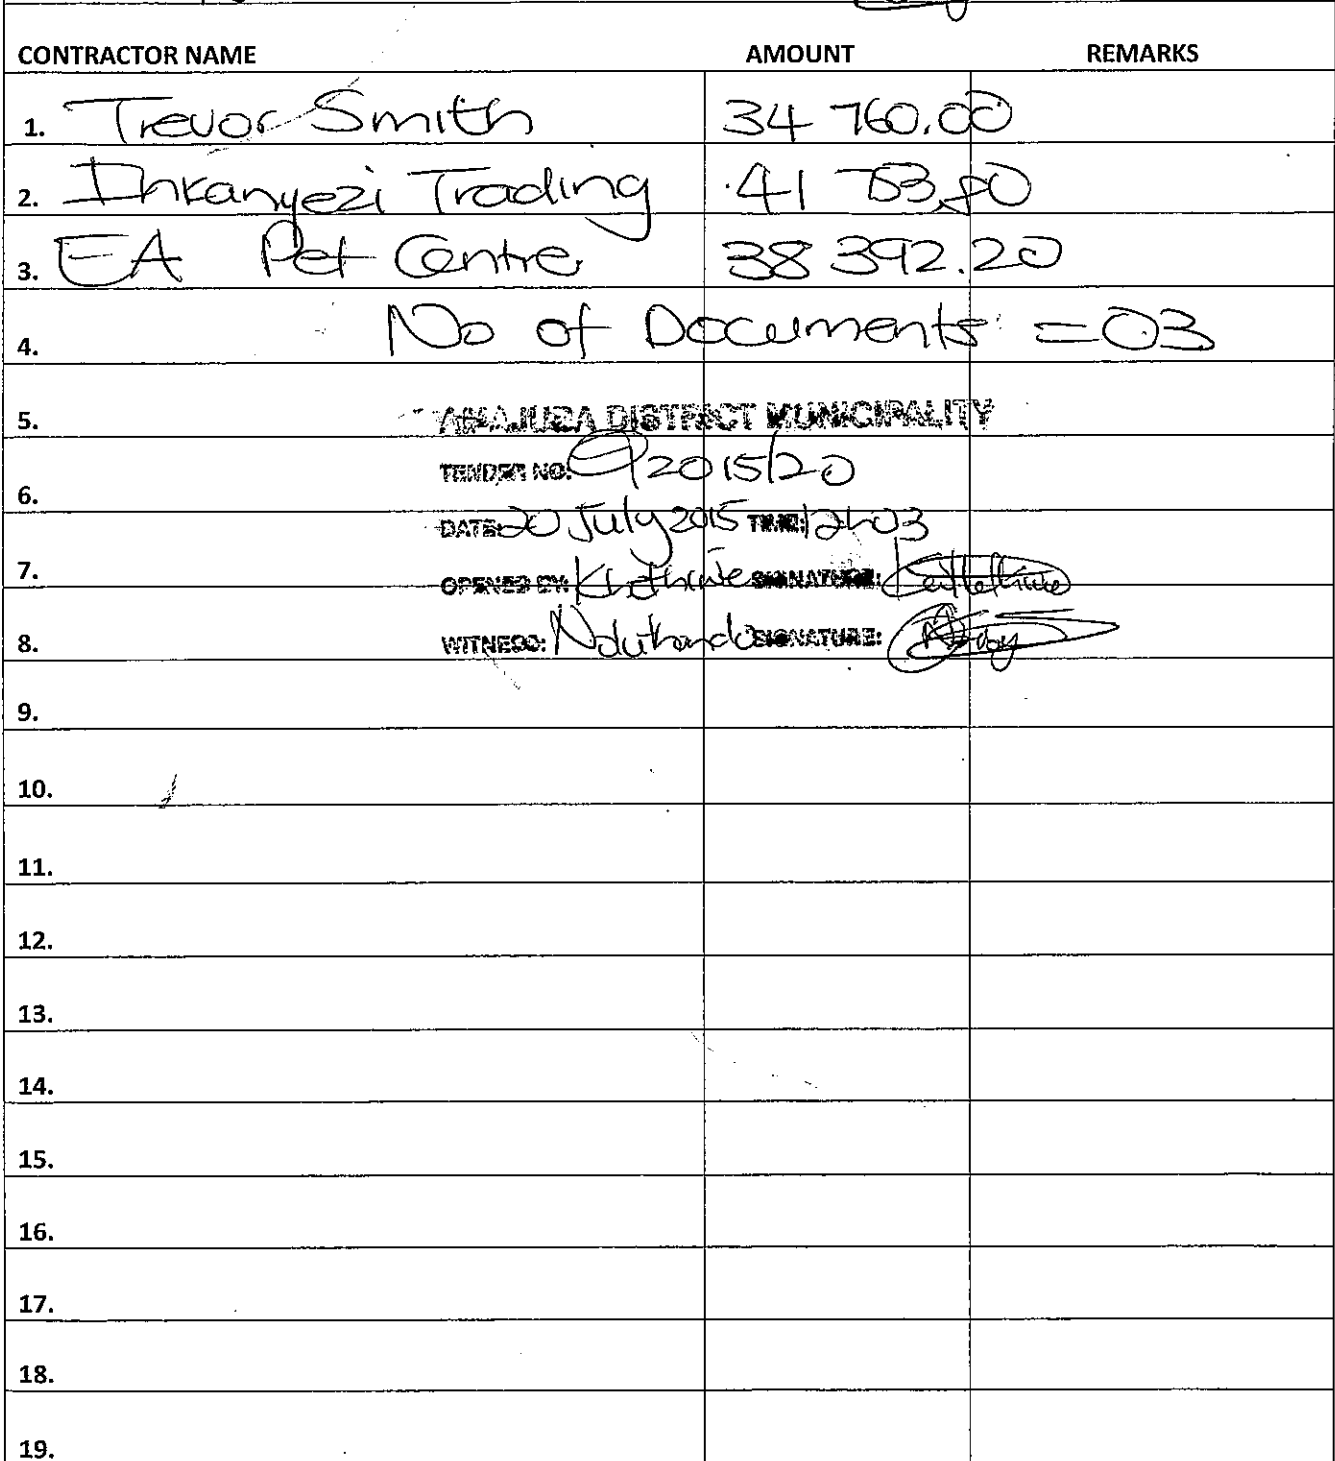 CONTRACTOR NAME AMOUNT REMARKS
1. Trevor Smith 34 760.00
2. Inkanyezi Trading 41
3. EA Pet Centre 38 392.20
4. No of Documents = 03
5. AMAJUBA DISTRICT MUNICIPALITY
TENDER NO: 2015/20
6.
DATE: 20 July 2015 TIME: 12h03
7. OPENED BY: SIGNATURE:
8. WITNESS: Noluthando SIGNATURE:
9.
10.
11.
12.
13.
14.
15.
16.
17.
18.
19.